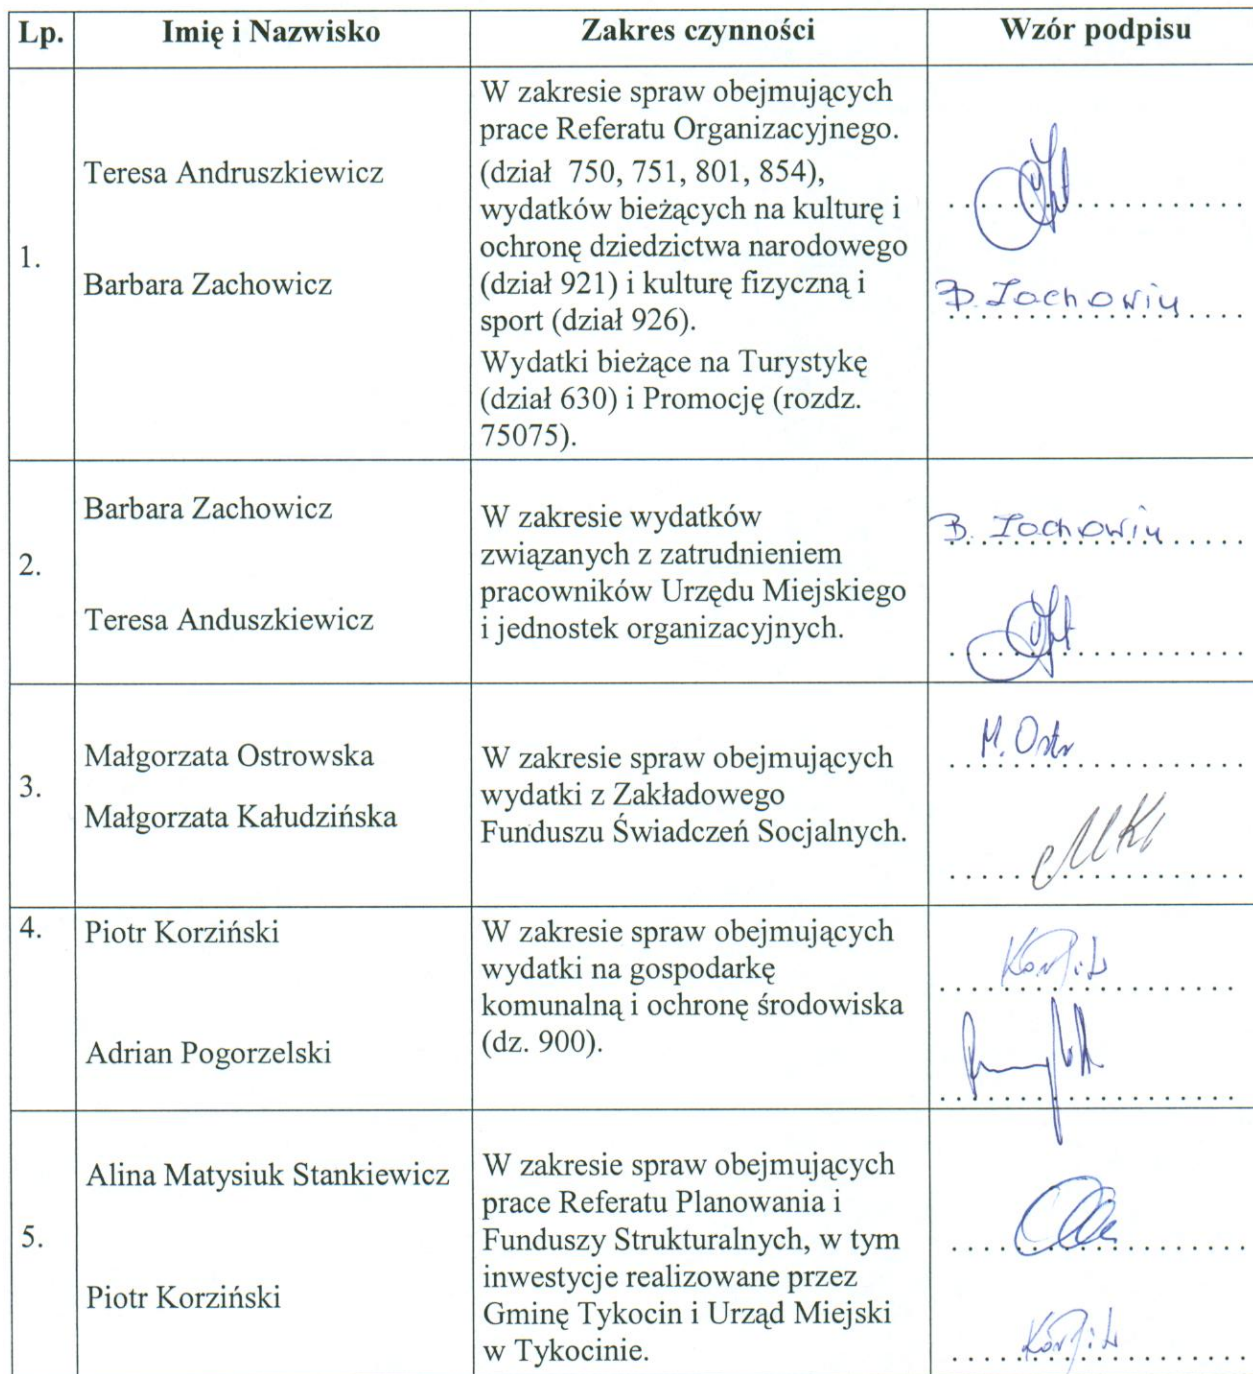 Lp. Imię i Nazwisko Zakres czynności Wzór podpisu
1.
Teresa Andruszkiewicz
Barbara Zachowicz
W zakresie spraw obejmujących
prace Referatu Organizacyjnego.
(dział 750, 751, 801, 854),
wydatków bieżących na kulturę i
ochronę dziedzictwa narodowego
(dział 921) i kulturę fizyczną i
sport (dział 926).
Wydatki bieżące na Turystykę
(dział 630) i Promocję (rozdz.
75075).
B. Zachowicz
2.
Barbara Zachowicz
Teresa Anduszkiewicz
W zakresie wydatków
związanych z zatrudnieniem
pracowników Urzędu Miejskiego
i jednostek organizacyjnych.
B. Zachowicz
3.
Małgorzata Ostrowska
Małgorzata Kałudzińska
W zakresie spraw obejmujących
wydatki z Zakładowego
Funduszu Świadczeń Socjalnych.
M. Ostr
4.
Piotr Korziński
Adrian Pogorzelski
W zakresie spraw obejmujących
wydatki na gospodarkę
komunalną i ochronę środowiska
(dz. 900).
5.
Alina Matysiuk Stankiewicz
Piotr Korziński
W zakresie spraw obejmujących
prace Referatu Planowania i
Funduszy Strukturalnych, w tym
inwestycje realizowane przez
Gminę Tykocin i Urząd Miejski
w Tykocinie.